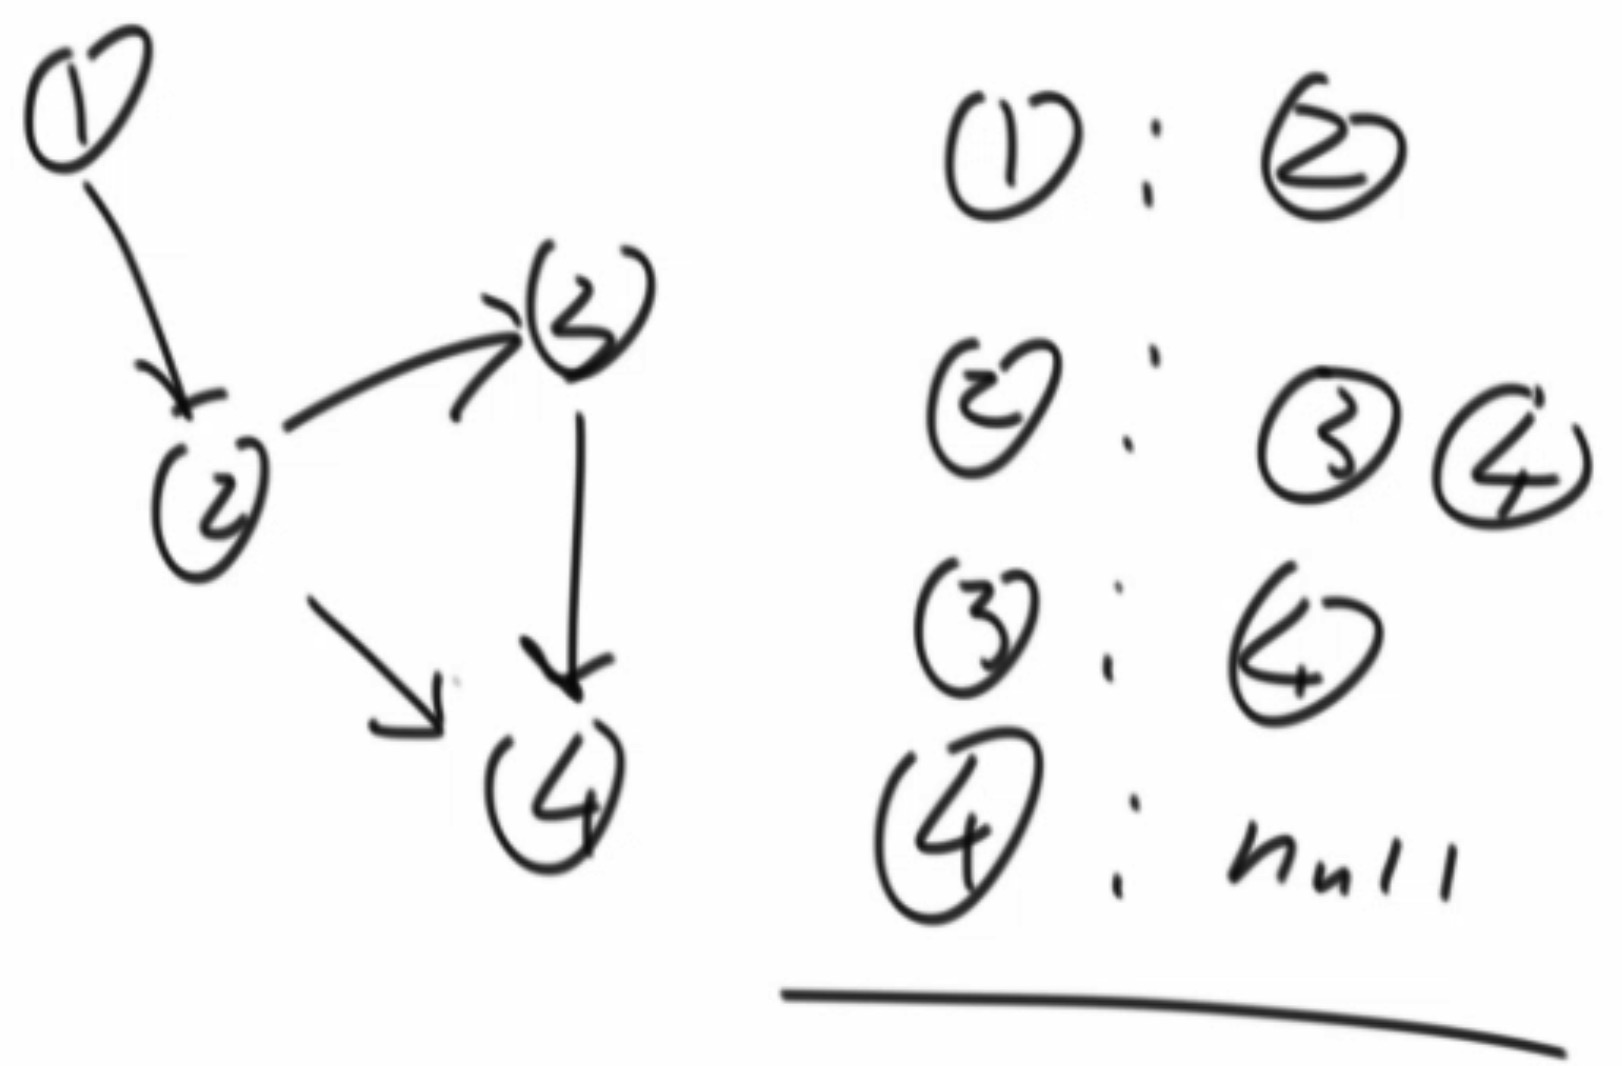 ①
③
②
④
① : ②
② : ③ ④
③ : ④
④ : null